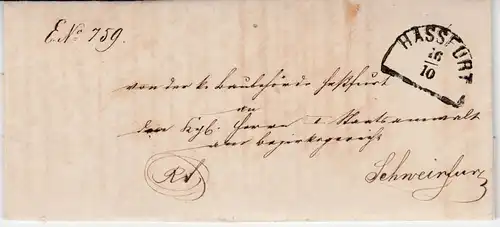 E.No 759.
HASSFURT
16
10
von der k. Baubehörde Hassfurt
an
den Kgl. Herrn I Staatsanwalt
am Bezirksgericht
Schweinfurt